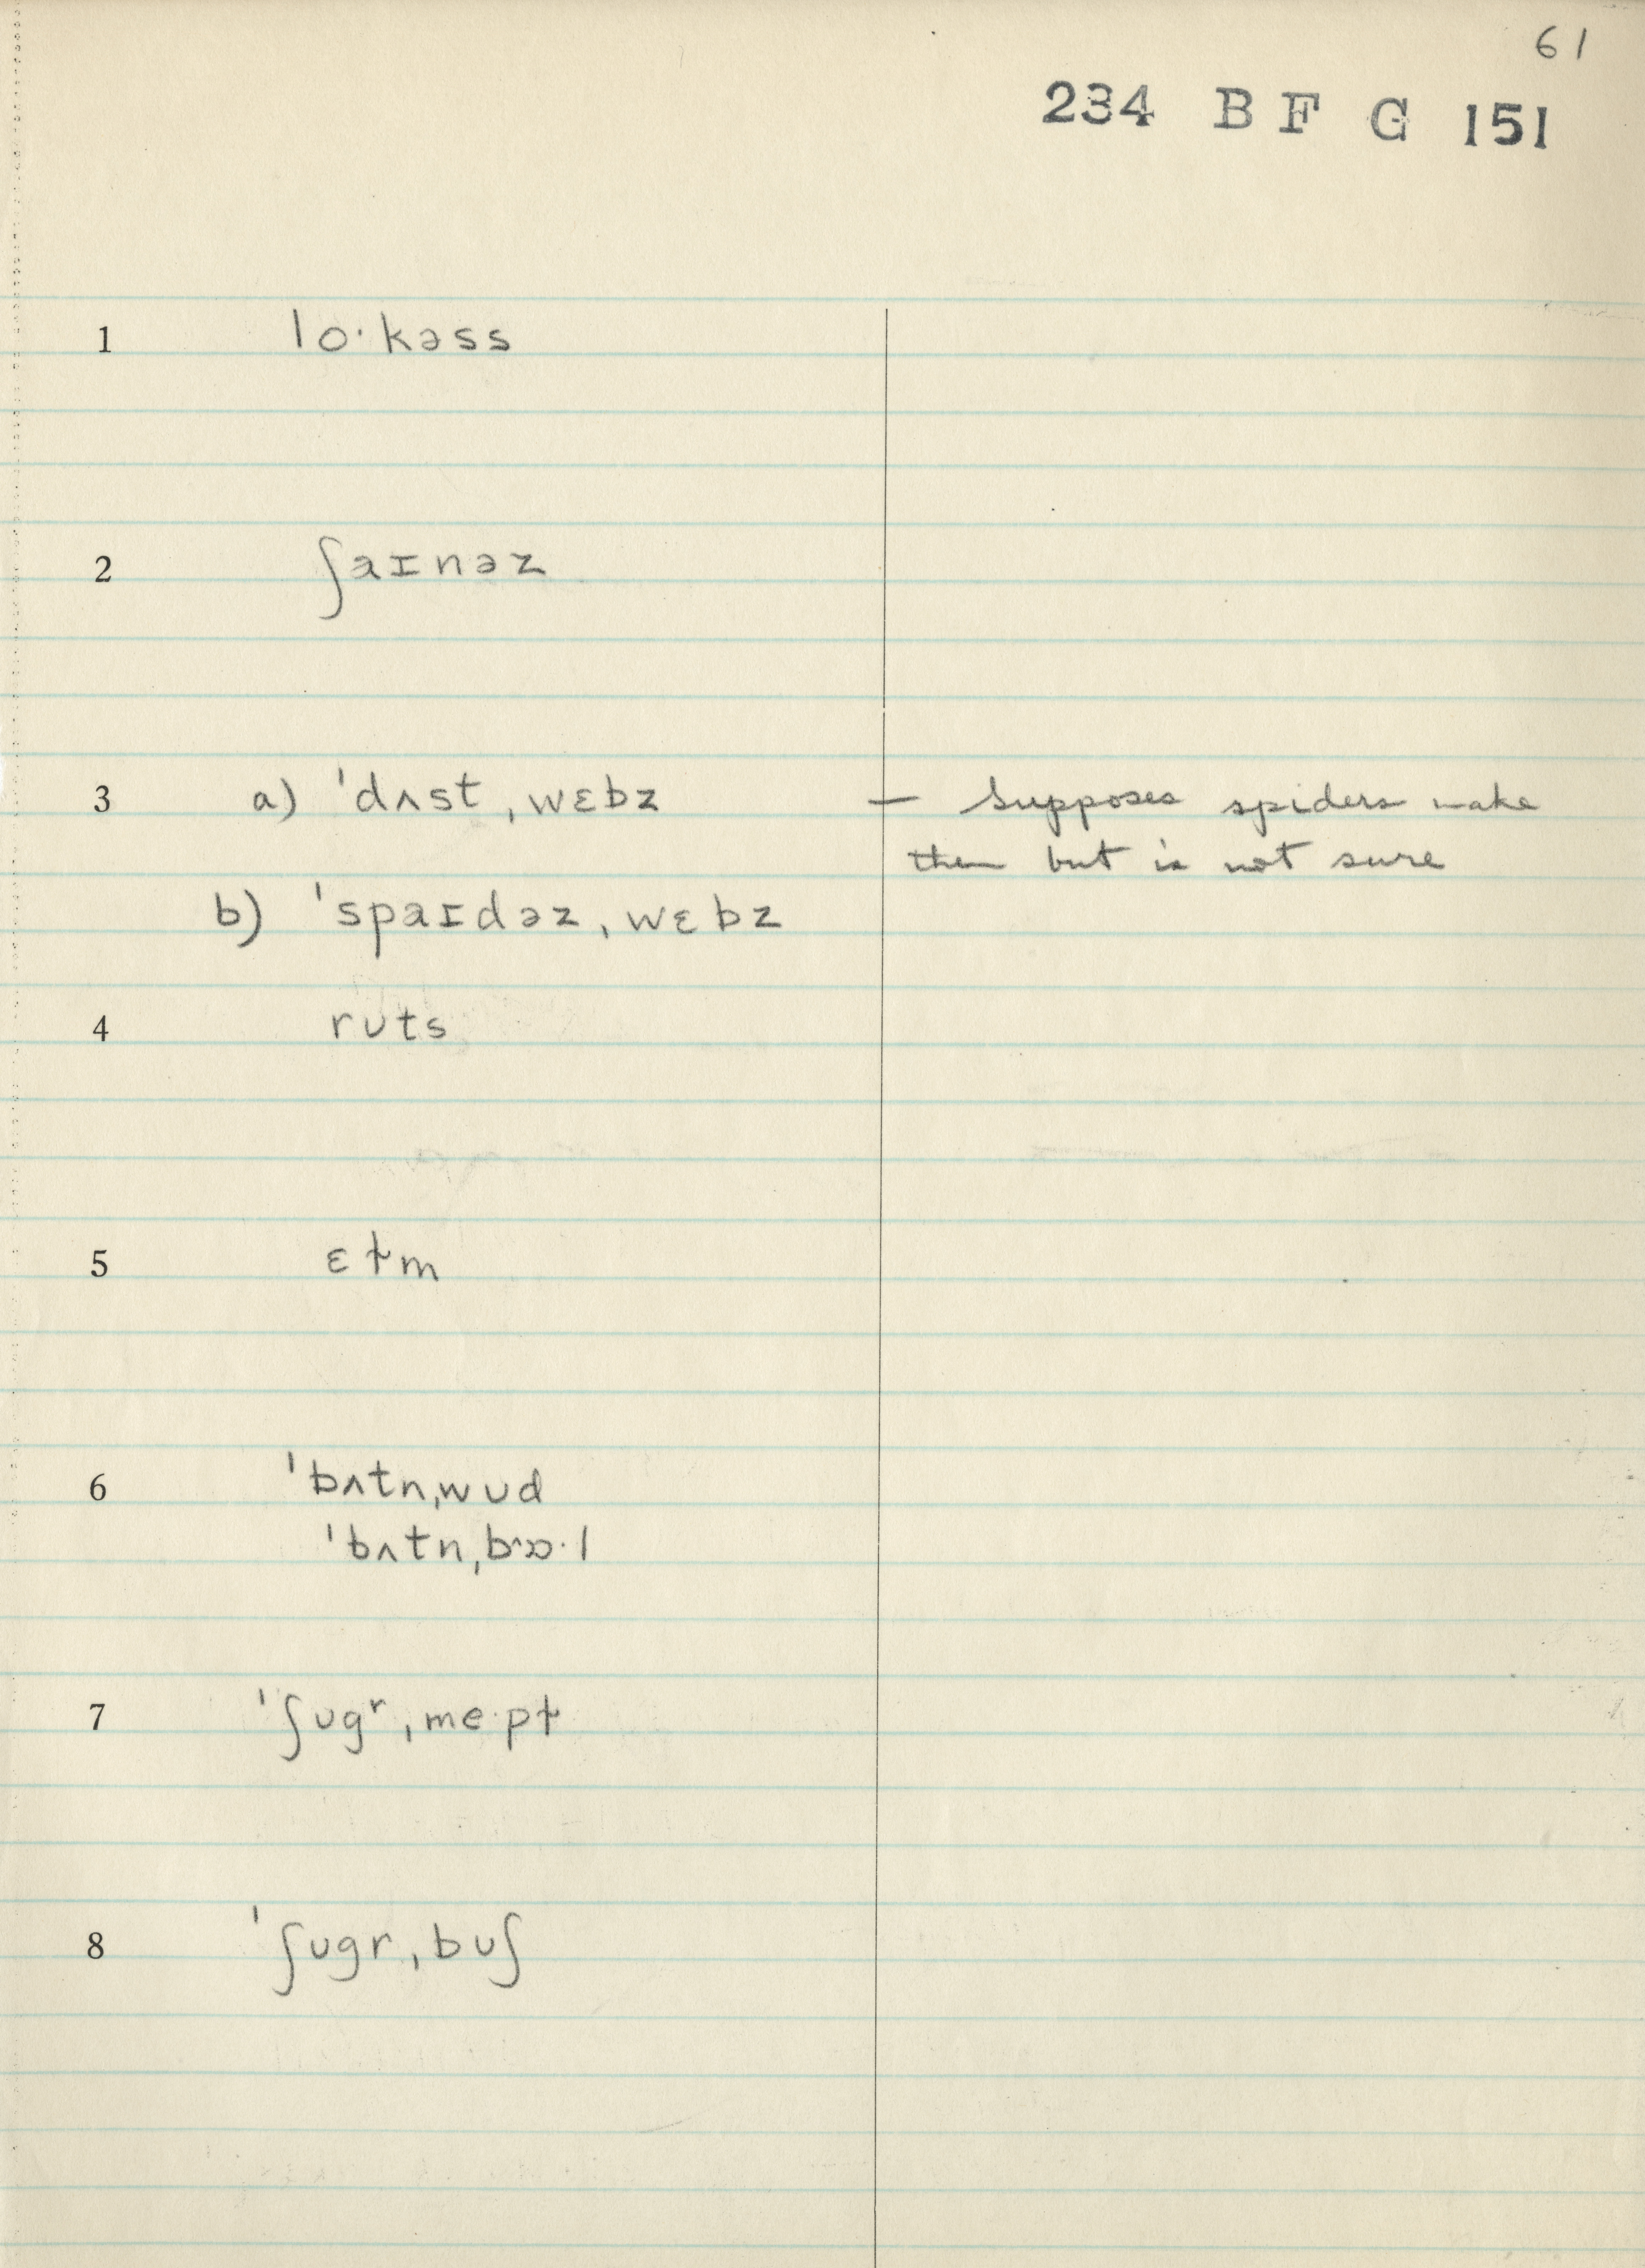 61
234 B F G 151
1 lo·kəss
2 ʃaɪnəz
3 a) ˈdʌst ˌwɛbz — Supposes spiders make
them but is not sure
b) ˈspaɪdəz ˌwɛbz
4 rʊts
5 ɛɫm
6 ˈbʌtn ˌwʊd
ˈbʌtn
7 ˈʃʊgʳ ˌme·pɫ
8 ˈʃʊgr ˌbʊʃ